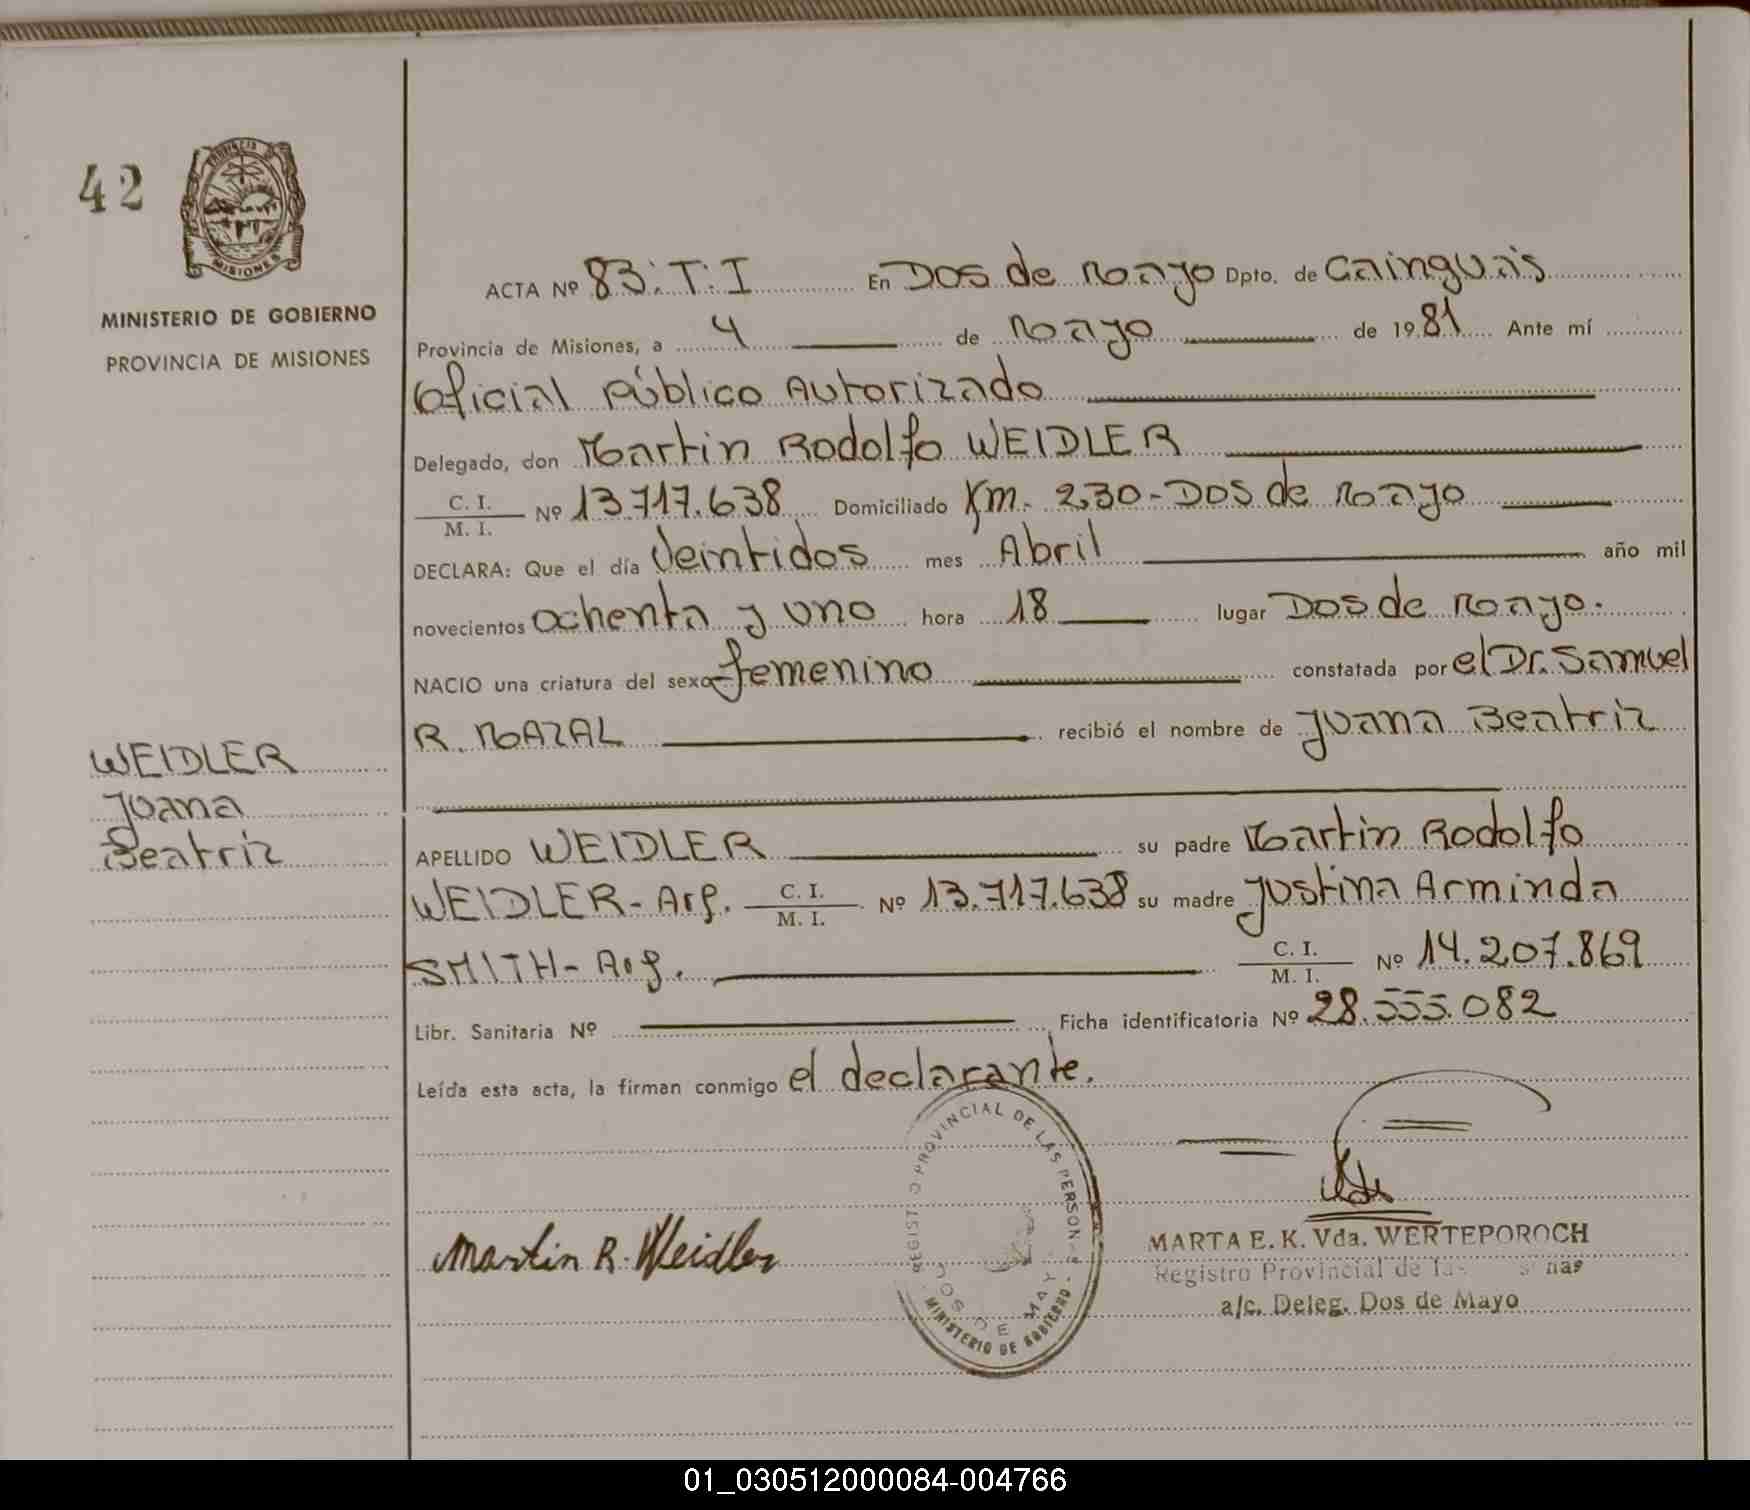 42
PROVINCIA DE
MISIONES
MINISTERIO DE GOBIERNO
PROVINCIA DE MISIONES
ACTA Nº 83.T.I En Dos de Mayo Dpto. de Cainguás
Provincia de Misiones, a 4 de Mayo de 1981 Ante mí
Oficial Público Autorizado
Delegado, don Martin Rodolfo WEIDLER
C. I.
M. I. Nº 13.717.638 Domiciliado Km. 230-Dos de Mayo
DECLARA: Que el día Veintidos mes Abril año mil
novecientos ochenta y uno hora 18 lugar Dos de Mayo.
NACIO una criatura del sexo femenino constatada por el Dr. Samuel
R. MAZAL recibió el nombre de Juana Beatriz
WEIDLER
Juana
Beatriz
APELLIDO WEIDLER su padre Martin Rodolfo
WEIDLER-Arg. C. I.
M. I. Nº 13.717.638 su madre Justina Arminda
SMITH-Arg. C. I.
M. I. Nº 14.207.869
Libr. Sanitaria Nº Ficha identificatoria Nº 28.555.082
Leída esta acta, la firman conmigo el declarante.
PROVINCIAL DE LAS PERSON
MINISTERIO DE GOBIERNO
Martin R. Weidler
MARTA E. K. Vda. WERTEPOROCH
Registro Provincial de
a/c. Deleg. Dos de Mayo
01_030512000084-004766